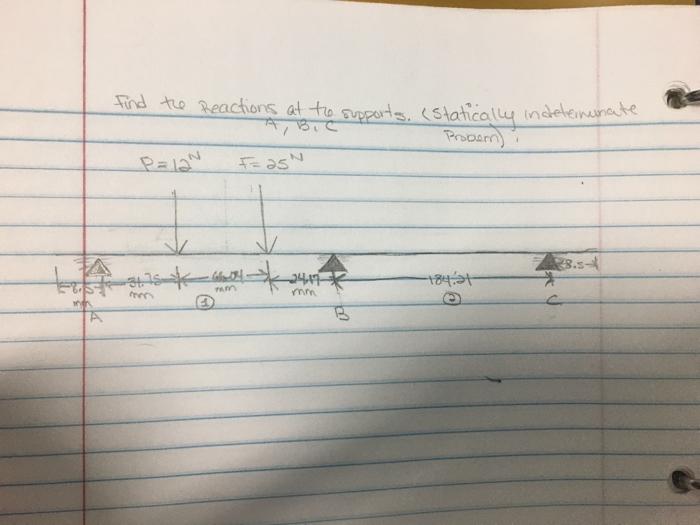 Find the Reactions at the supports. (Statically indeterminate
A, B, C
Problem).
P = 12 N F = 25 N
8.5 31.75 24.17 184.21 8.5
mm mm mm mm
① ②
A B C